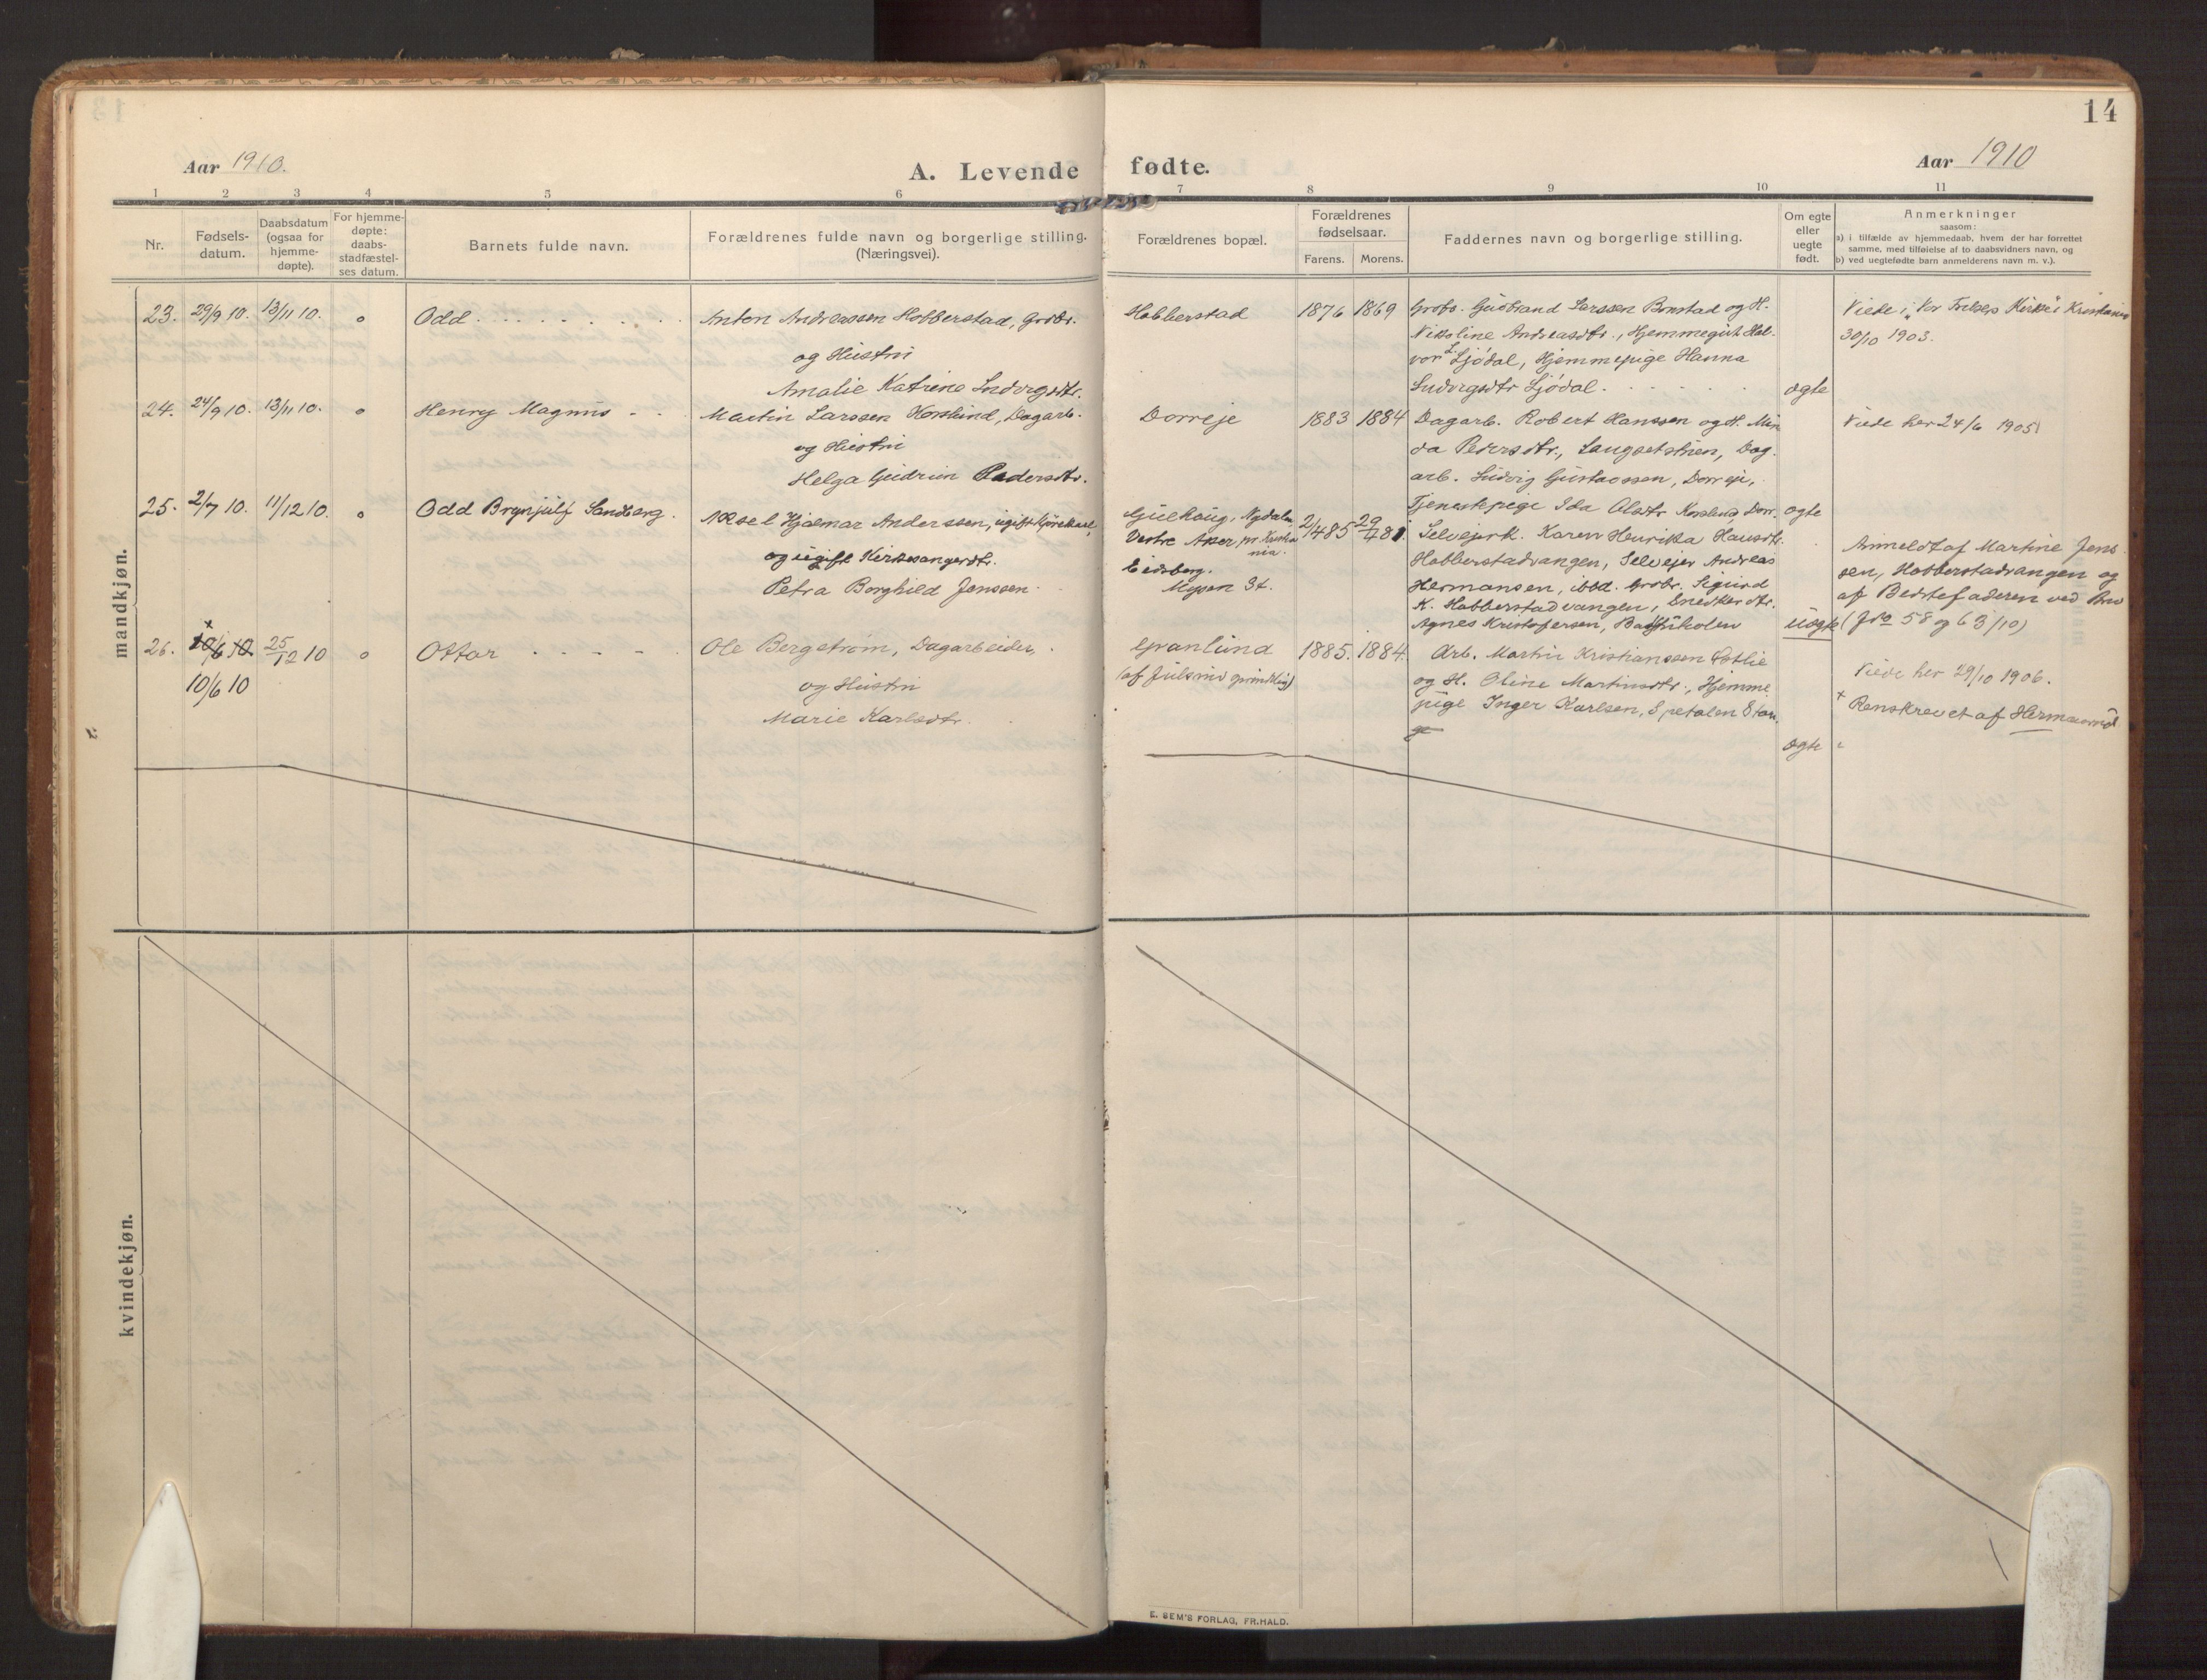 14
Aar 1910.
A. Levende fødte.
Aar 1910
1 2 3 4 5 6 7 8 9 10 11
Nr.
Fødsels-
datum.
Daabsdatum
(ogsaa for
hjemme-
døpte).
For hjemme-
døpte:
daabs-
stadfæstel-
ses datum.
Barnets fulde navn.
Forældrenes fulde navn og borgerlige stilling.
(Næringsvei).
Forældrenes bopæl.
Forældrenes
fødselsaar.
Farens. Morens.
Faddernes navn og borgerlige stilling.
Om egte
eller
uegte
født.
Anmerkninger
saasom:
a) i tilfælde av hjemmedaab, hvem der har forrettet
samme, med tilføielse af to daabsvidners navn, og
b) ved uegtefødte barn anmelderens navn m. v.).
mandkjøn.
23. 29/9 10. 13/11 10. o Odd
Anton Andreassen Hobberstad, Grdbr.
og Hustru
Amalie Katrine Ludvigsdtr.
Hobberstad
1876 1869
Grdbr. Gudbrand Larssen Bonstad og H.
Nikoline Andreasdtr., Hjemmegut Hal-
vor L. Ljødal, Hjemmepige Hanna
Ludvigsdtr Ljødal.
egte
Viede i Vor Frelsers Kirke i Kristiania
30/10 1903.
24. 24/9 10. 13/11 10. o Henry Magnus
Martin Larssen Korslund, Dagarb.
og Hustru
Helga Gudrun Pedersdtr.
Dorreje
1883 1884
Dagarb. Robert Hanssen og H. Min
da Pedersdtr., Langsetstuen, Dag-
arb. Ludvig Gustavssen, Dorreje,
Tjenestepige Ida Olsdtr Korslund, Dorr.
egte
Viede her 24/6 1905
25. 2/7 10. 11/12 10. o Odd Brynjulf Sandberg.
Aksel Hjalmar Anderssen, ugift Kjørekarl,
og ugift Kirkesangerdtr.
Petra Borghild Jenssen
Gulhaug, Nydalen
Vestre Aker pr Kristia
nia.
Eidsberg.
Mysen St.
2/4 85 29/4 81
Selveierk. Karen Henrika Hansdtr.
Hobberstadvangen, Selveier Andreas
Hermansen, ibid. Grdbr. Sigurd
K. Hobberstadvangen, Snedkerdtr.
Agnes Kristofersen,
uegte
Anmeldt af Martine Jens-
sen, Hobberstadvangen og
af Bedstefaderen ved Brev
(Jno 58 og 63/10)
26. x 10/6 10. 25/12 10 o Ottar
10/6 10
Ole Bergstrøm, Dagarbeider,
og Hustru
Marie Karlsdtr.
Granlund
(af Julsrud
1885. 1884.
Arb. Martin Kristianssen Østlie
og H. Oline Martinsdtr., Hjemme
pige Inger Karlsen, Spetalen Stan
ge
egte
Viede her 29/10 1906.
x Renskrevet af
kvindekjøn.
E. SEM'S FORLAG, FR.HALD.